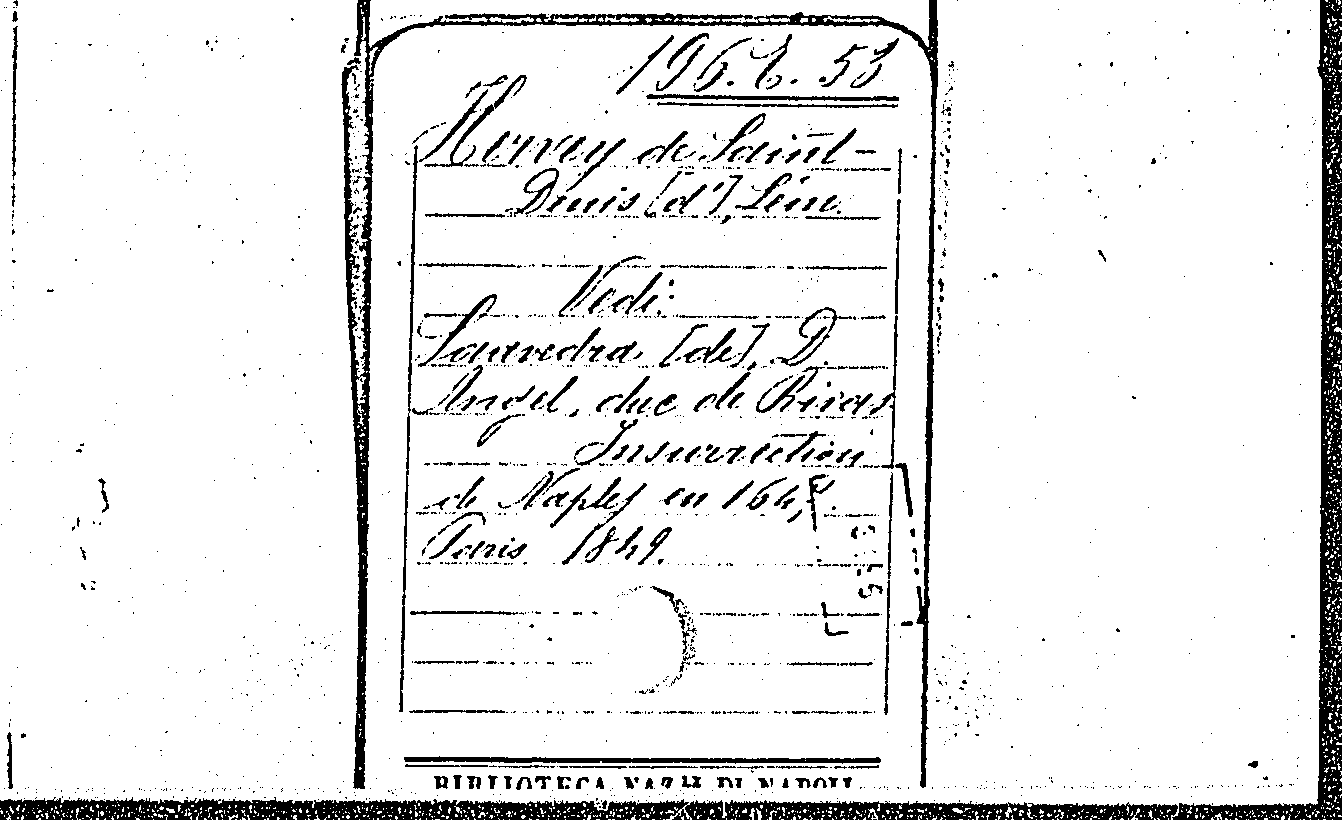 196. C. 53
Hervey de Saint-
Denis [d'], Léon.
Vedi:
Saavedra [de], D.
Angel, duc de Rivas
Insurrection
de Naples en 1647.
Paris 1849.
BIBLIOTECA NAZ.LE DI NAPOLI